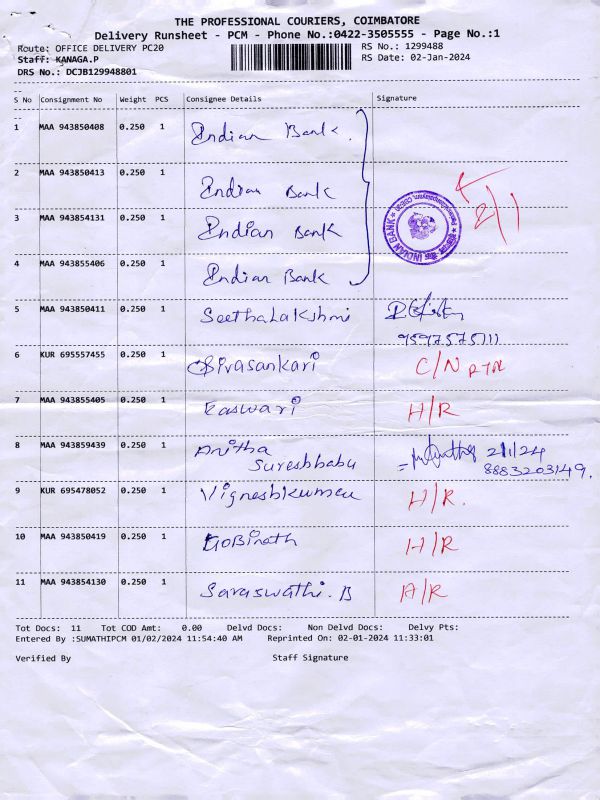 THE PROFESSIONAL COURIERS, COIMBATORE
Delivery Runsheet - PCM - Phone No.:0422-3505555 - Page No.:1
Route: OFFICE DELIVERY PC20 RS No.: 1299488
Staff: KANAGA.P RS Date: 02-Jan-2024
DRS No.: DCJB129948801
S No Consignment No Weight PCS Consignee Details Signature
1 MAA 943850408 0.250 1 Indian Bank.
2 MAA 943850413 0.250 1 Indian Bank
3 MAA 943854131 0.250 1 Indian Bank
INDIAN BANK
2/1
4 MAA 943855406 0.250 1 Indian Bank
5 MAA 943850411 0.250 1 Seethalakshmi
9597575111
6 KUR 695557455 0.250 1 Sivasankari C/N RTN
7 MAA 943855405 0.250 1 Easwari H/R
8 MAA 943859439 0.250 1 Anitha 2/1/24
Sureshbabu 8883203149.
9 KUR 695478052 0.250 1 Vigneshkumar H/R.
10 MAA 943850419 0.250 1 GoBinath H/R
11 MAA 943854130 0.250 1 Saraswathi.B A/R
Tot Docs: 11 Tot COD Amt: 0.00 Delvd Docs: Non Delvd Docs: Delvy Pts:
Entered By :SUMATHIPCM 01/02/2024 11:54:40 AM Reprinted On: 02-01-2024 11:33:01
Verified By Staff Signature